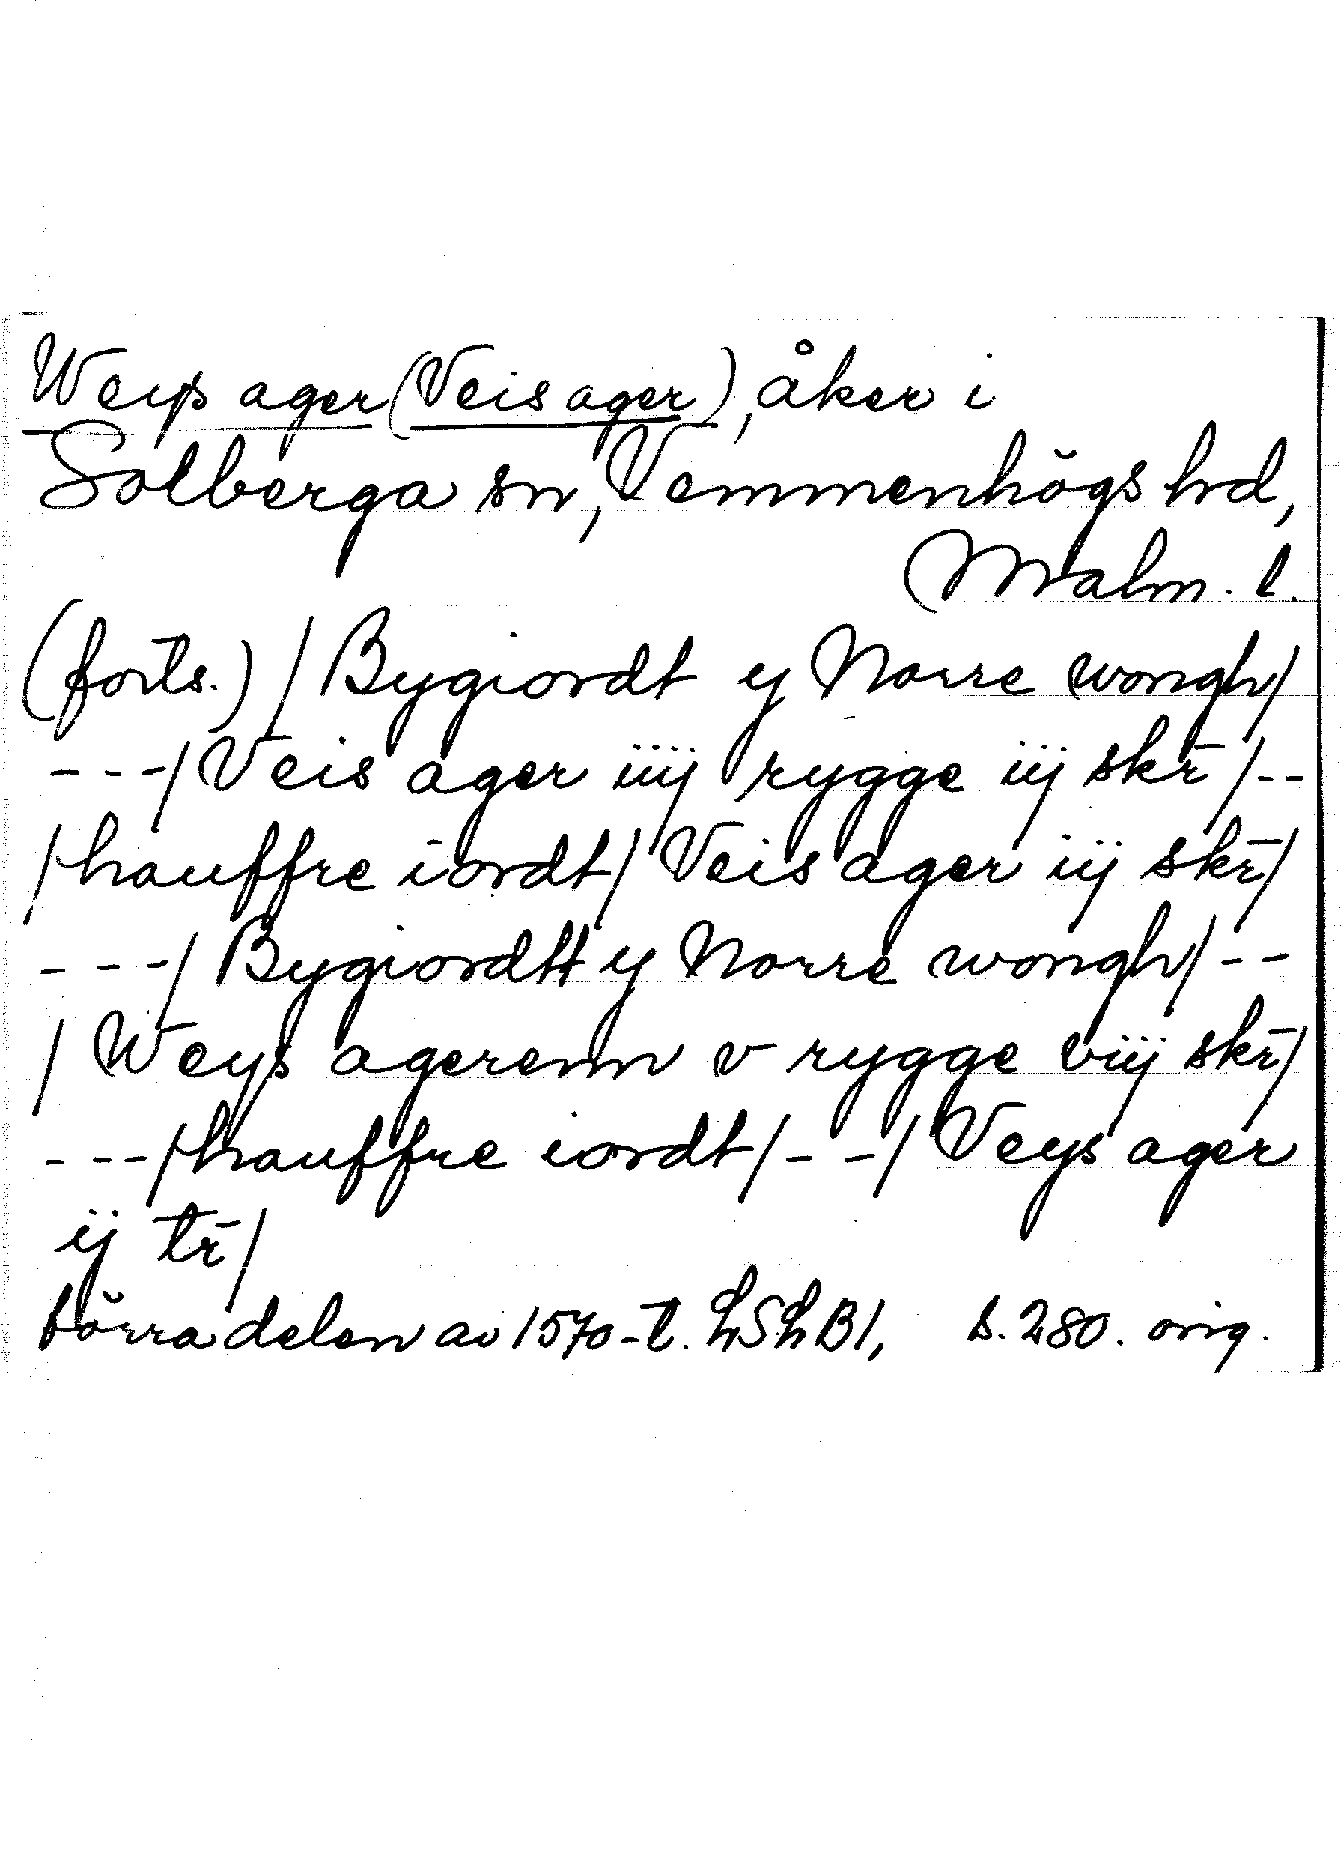 Weys ager (Veis ager), åker i
Solberga sn, Vemmenhögs hd,
Malm. l.
(forts.) / Bygiordt y Norre wongh/
---/ Veis ager iiij rygge iij skr̄ /--
/ hauffre iordt/ Veis ager iij skr̄/
---/ Bygiordtt y Norre wongh/--
/ Weys agerenn v rygge viij skr̄/
---/ hauffre iordt/--/ Veys ager
ij tr̄/
förra delen av 1570-t. LSLB1, s. 280. orig.